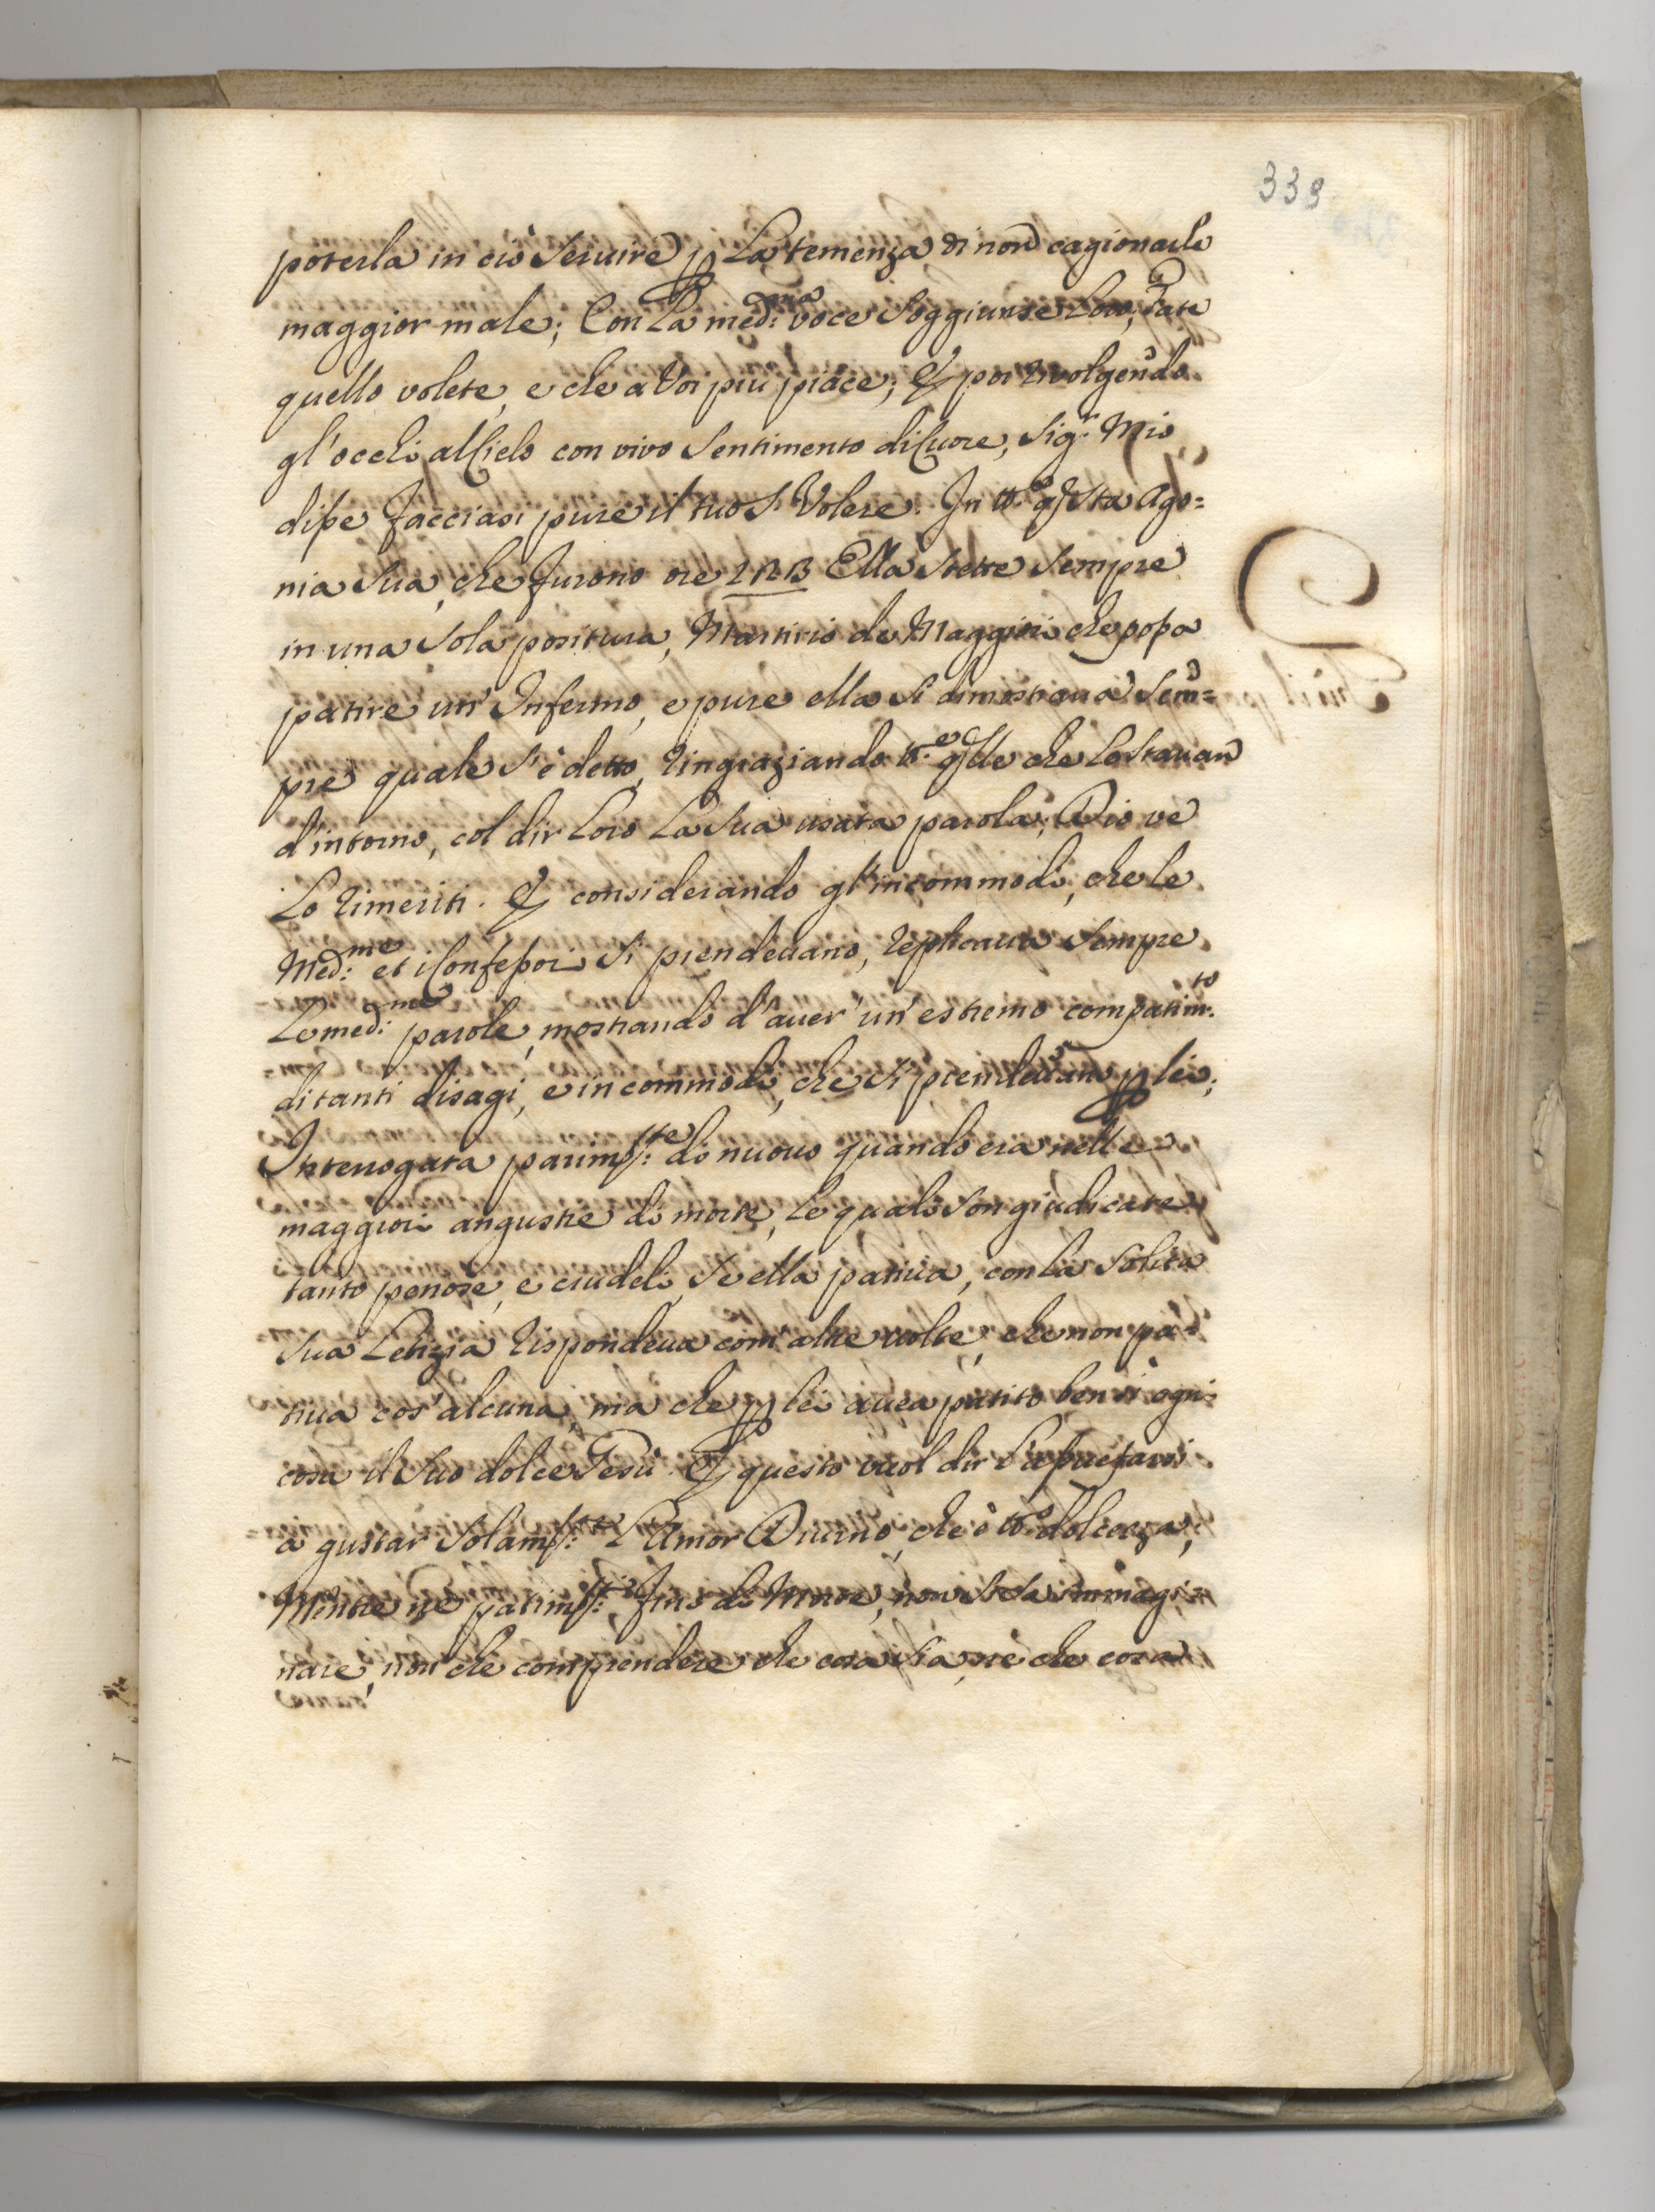 339
poterla in ciò Servire p La temenza di non cagionarle
maggior male; Con La med:ma voce Soggiunse Loro, Fate
quello volete, e che a Voi piu piace; E poi rivolgendo
gl'occhi al Cielo con vivo Sentimento di Cuore, Sig.r Mio
disse facciasi pure il tuo S. Volere. In tt.a qsta Ago=
nia Sua, che furono ore Ella Stette Sempre
in una Sola positura, Martirio de Maggiori che possa
patire un' Infermo, e pure ella Si dimostraua Sem=
pre quale S'è detto, ringraziando tt.e qlle che La Stauan
d'intorno, col dir Loro La Sua usata parola; Dio ve
Lo rimeriti. E considerando gl'incommodi, che le
Med:me et i Confessori Si prendeuano, replicaua Sempre
Le med:me parole, mostrando d'auer' un' estremo compatim.to
di tanti disagi, e incommodi, che Si prendeuano p lei;
Interrogata parimte: di nuouo quando era nelle
maggiori angustie di morte, Le quali Son giudicate
tanto penose, e crudeli, Se ella patiua, con La Solita
Sua Letizia rispondeua com' altre uolte, che non pa=
tiua cos' alcuna, ma che p lei auea patito ben sì ogni
cosa il Suo dolce Gesù. E questo vuol dir L'assuefarsi
a gustar Solamte: L'Amor Diuino, che è tt.o dolcezza;
Mentre ne patimti: fino di Morte, non Si Sa immagi=
nare, non che comprendere che cosa Sia, nè che cosa